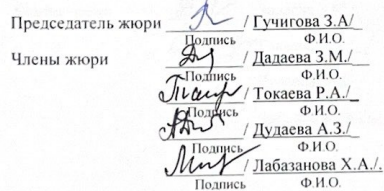 Председатель жюри / Гучигова З.А/
Подпись Ф.И.О.
Члены жюри / Дадаева З.М./
Подпись Ф.И.О.
/ Токаева Р.А./
Подпись Ф.И.О.
/ Дудаева А.З./
Подпись Ф.И.О.
/ Лабазанова Х.А./.
Подпись Ф.И.О.